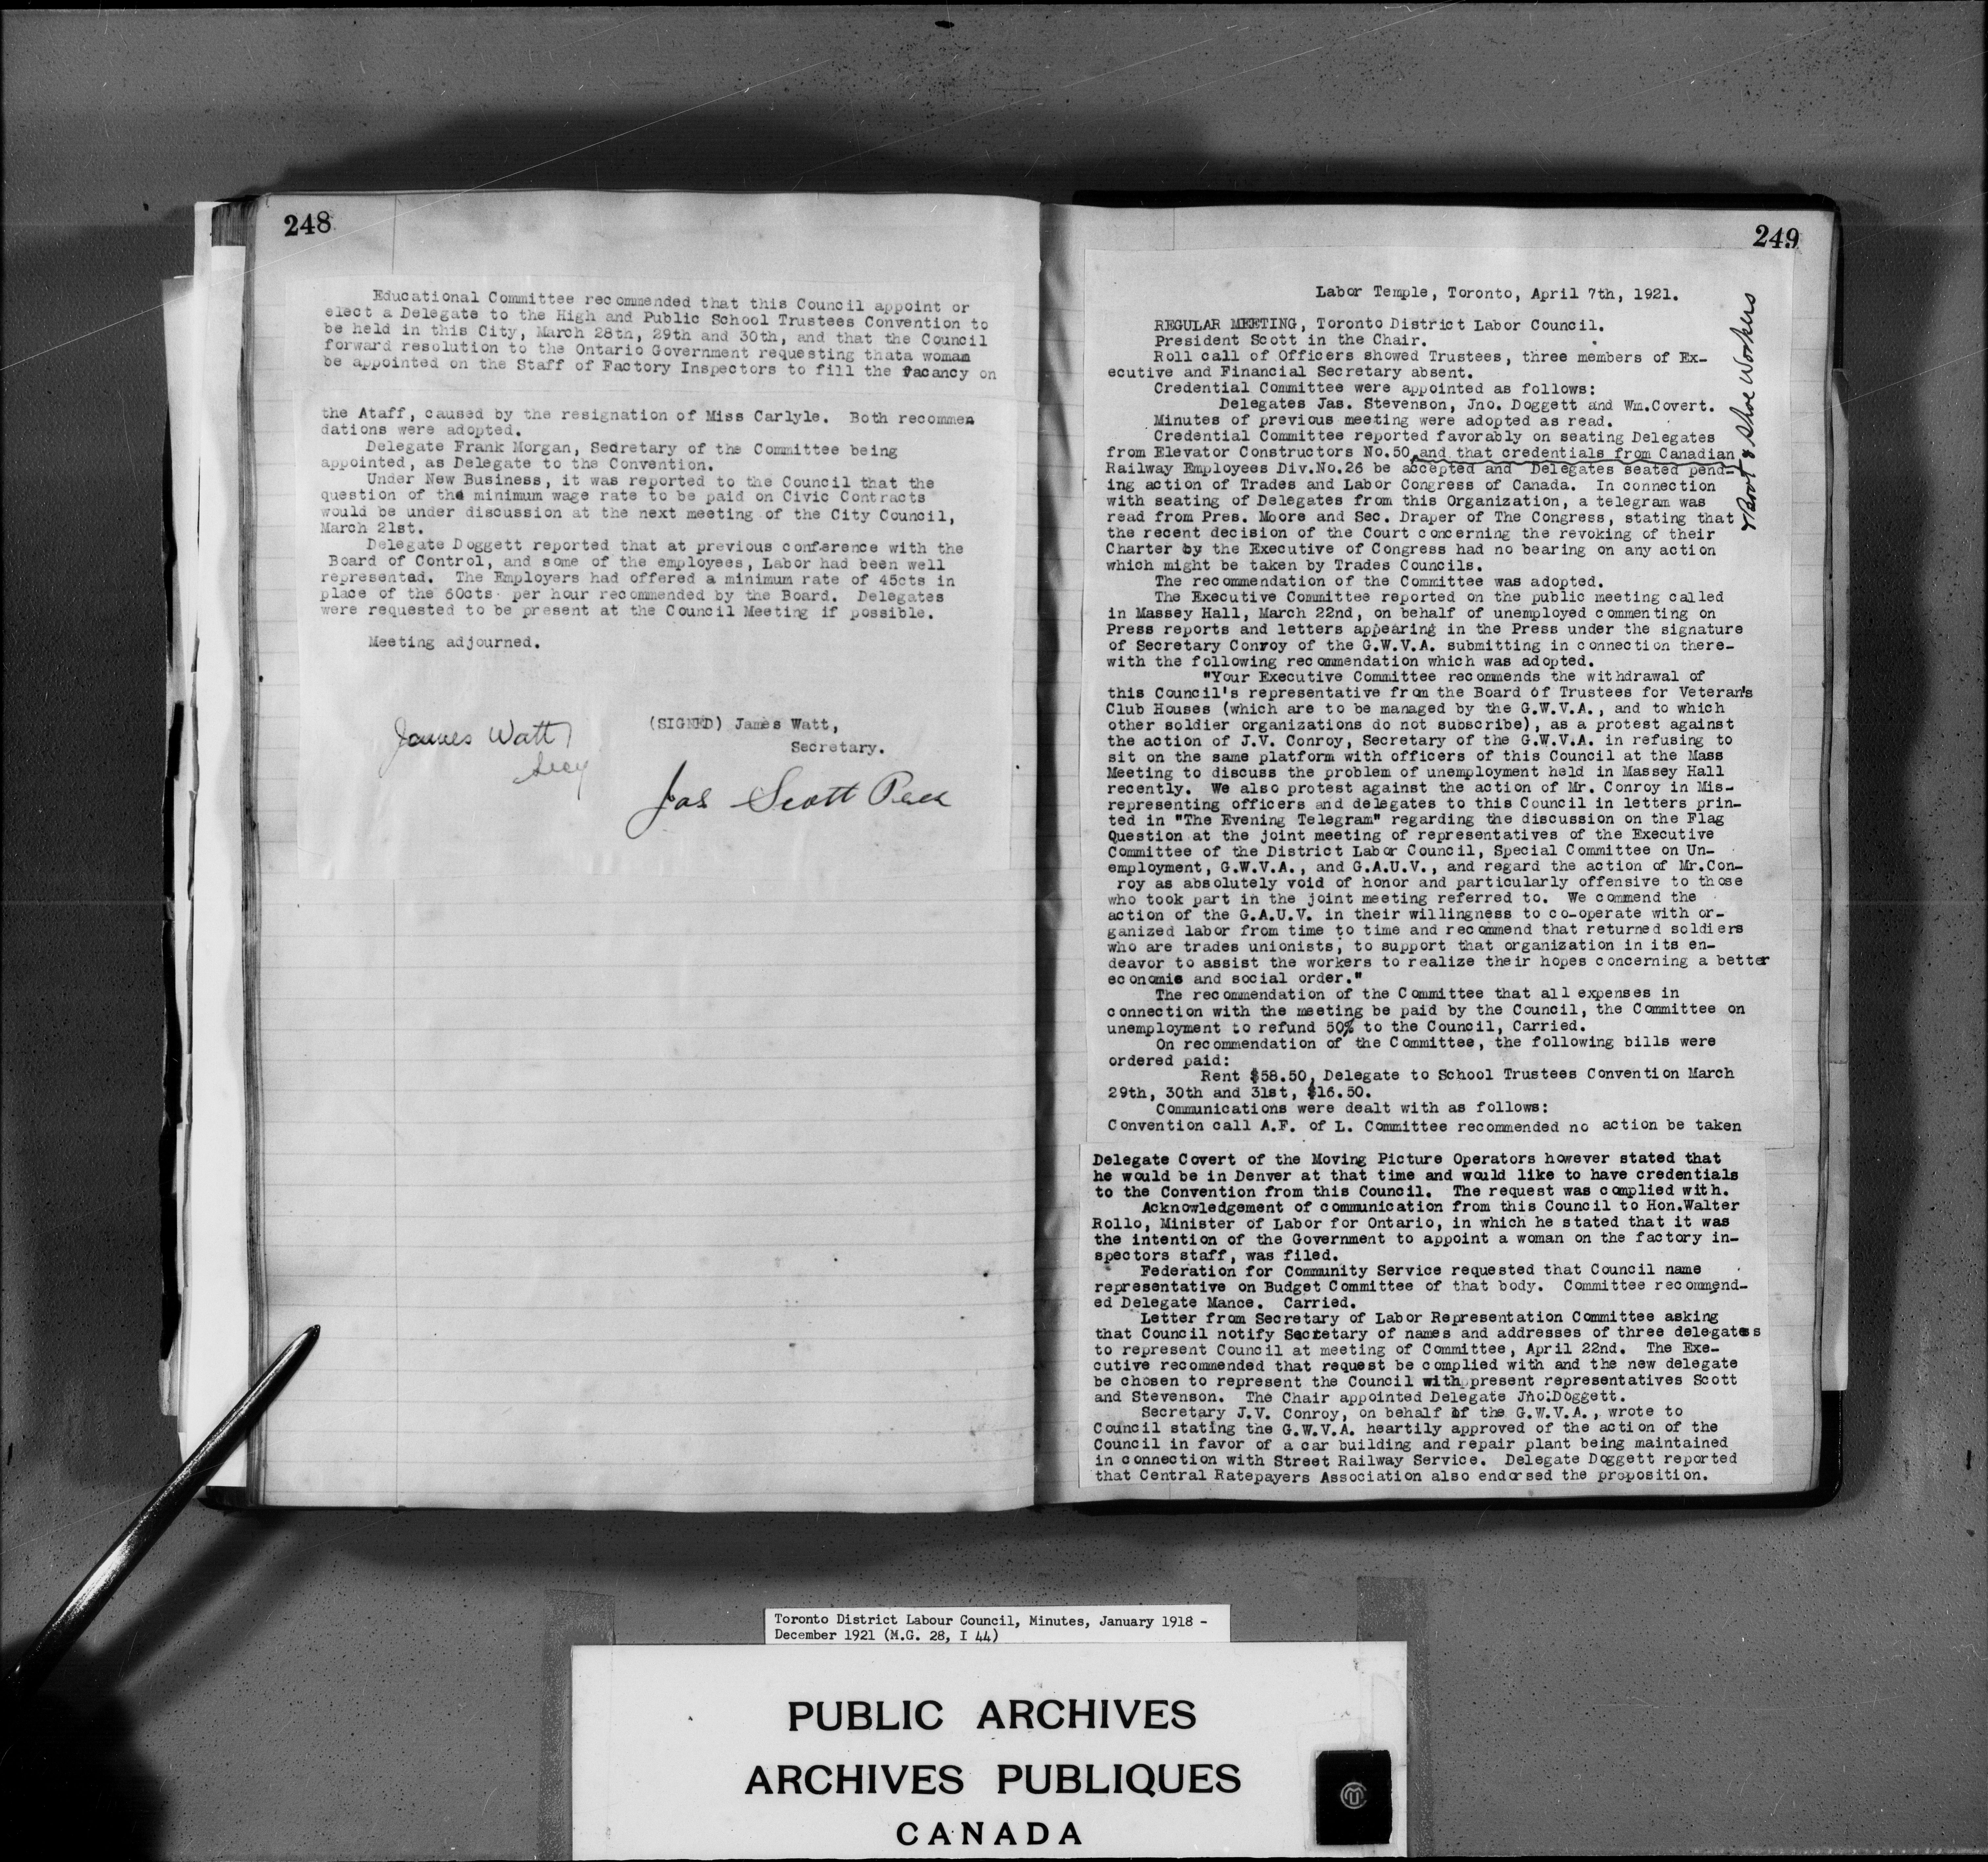 248
Educational Committee recommended that this Council appoint or
elect a Delegate to the High and Public School Trustees Convention to
be held in this City, March 28th, 29th and 30th, and that the Council
forward resolution to the Ontario Government requesting thata woman
be appointed on the Staff of Factory Inspectors to fill the vacancy on
the Ataff, caused by the resignation of Miss Carlyle. Both recommen
dations were adopted.
Delegate Frank Morgan, Secretary of the Committee being
appointed, as Delegate to the Convention.
Under New Business, it was reported to the Council that the
question of the minimum wage rate to be paid on Civic Contracts
would be under discussion at the next meeting of the City Council,
March 21st.
Delegate Doggett reported that at previous conference with the
Board of Control, and some of the employees, Labor had been well
represented. The Employers had offered a minimum rate of 45cts in
place of the 60cts per hour recommended by the Board. Delegates
were requested to be present at the Council Meeting if possible.
Meeting adjourned.
(SIGNED) James Watt,
Secretary.
James Watt
Secy
Jas Scott Pres
249
Labor Temple, Toronto, April 7th, 1921.
REGULAR MEETING, Toronto District Labor Council.
President Scott in the Chair.
Roll call of Officers showed Trustees, three members of Ex-
ecutive and Financial Secretary absent.
Credential Committee were appointed as follows:
Delegates Jas. Stevenson, Jno. Doggett and Wm.Covert.
Minutes of previous meeting were adopted as read.
Credential Committee reported favorably on seating Delegates
from Elevator Constructors No.50,and that credentials from Canadian
Railway Employees Div.No.26 be accepted and Delegates seated pend-
ing action of Trades and Labor Congress of Canada. In connection
with seating of Delegates from this Organization, a telegram was
read from Pres. Moore and Sec. Draper of The Congress, stating that
the recent decision of the Court concerning the revoking of their
Charter by the Executive of Congress had no bearing on any action
which might be taken by Trades Councils.
The recommendation of the Committee was adopted.
The Executive Committee reported on the public meeting called
in Massey Hall, March 22nd, on behalf of unemployed commenting on
Press reports and letters appearing in the Press under the signature
of Secretary Conroy of the G.W.V.A. submitting in connection there-
with the following recommendation which was adopted.
"Your Executive Committee recommends the withdrawal of
this Council's representative from the Board of Trustees for Veteran's
Club Houses (which are to be managed by the G.W.V.A., and to which
other soldier organizations do not subscribe), as a protest against
the action of J.V. Conroy, Secretary of the G.W.V.A. in refusing to
sit on the same platform with officers of this Council at the Mass
Meeting to discuss the problem of unemployment held in Massey Hall
recently. We also protest against the action of Mr. Conroy in Mis-
representing officers and delegates to this Council in letters prin-
ted in "The Evening Telegram" regarding the discussion on the Flag
Question at the joint meeting of representatives of the Executive
Committee of the District Labor Council, Special Committee on Un-
employment, G.W.V.A., and G.A.U.V., and regard the action of Mr.Con-
roy as absolutely void of honor and particularly offensive to those
who took part in the joint meeting referred to. We commend the
action of the G.A.U.V. in their willingness to co-operate with or-
ganized labor from time to time and recommend that returned soldiers
who are trades unionists, to support that organization in its en-
deavor to assist the workers to realize their hopes concerning a better
economic and social order."
The recommendation of the Committee that all expenses in
connection with the meeting be paid by the Council, the Committee on
unemployment to refund 50% to the Council, Carried.
On recommendation of the Committee, the following bills were
ordered paid:
Rent $58.50, Delegate to School Trustees Convention March
29th, 30th and 31st, $16.50.
Communications were dealt with as follows:
Convention call A.F. of L. Committee recommended no action be taken
Delegate Covert of the Moving Picture Operators however stated that
he would be in Denver at that time and would like to have credentials
to the Convention from this Council. The request was complied with.
Acknowledgement of communication from this Council to Hon.Walter
Rollo, Minister of Labor for Ontario, in which he stated that it was
the intention of the Government to appoint a woman on the factory in-
spectors staff, was filed.
Federation for Community Service requested that Council name
representative on Budget Committee of that body. Committee recommend-
ed Delegate Mance. Carried.
Letter from Secretary of Labor Representation Committee asking
that Council notify Secretary of names and addresses of three delegates
to represent Council at meeting of Committee, April 22nd. The Exe-
cutive recommended that request be complied with and the new delegate
be chosen to represent the Council with present representatives Scott
and Stevenson. The Chair appointed Delegate Jno.Doggett.
Secretary J.V. Conroy, on behalf of the G.W.V.A., wrote to
Council stating the G.W.V.A. heartily approved of the action of the
Council in favor of a car building and repair plant being maintained
in connection with Street Railway Service. Delegate Doggett reported
that Central Ratepayers Association also endorsed the proposition.
& Boot & Shoe Workers
Toronto District Labour Council, Minutes, January 1918 -
December 1921 (M.G. 28, I 44)
PUBLIC ARCHIVES
ARCHIVES PUBLIQUES
CANADA